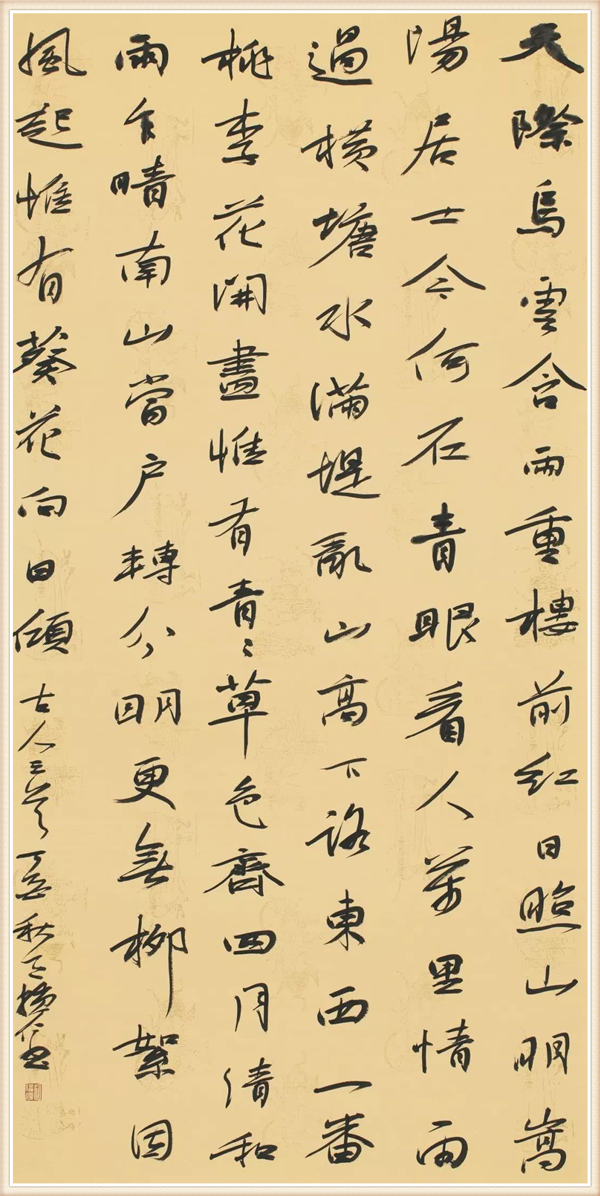 天際烏雲含雨重樓前紅日照山明嵩
陽居士今何石青眼看人萬里情雨
過橫塘水滿堤亂山高下路東西一番
桃李花開盡惟有青々草色齊四月清和
雨乍晴南山當户轉分明更無柳絮因
風起惟有葵花向日傾 古人三首丁亥秋